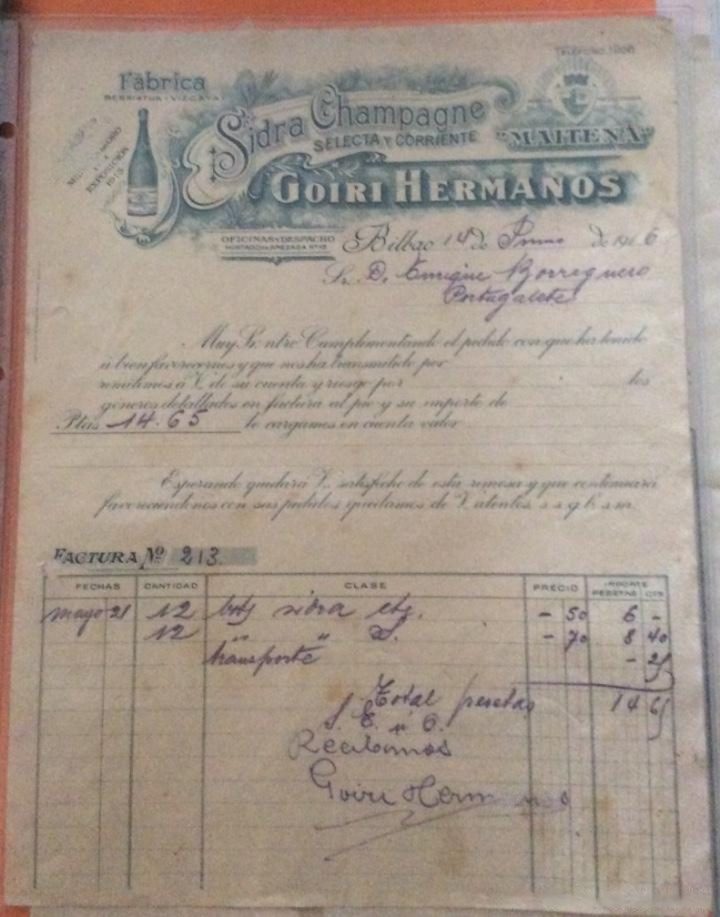 TELÉFONO 1906
Fábrica
BERRIATUA - VIZCAYA
EXPOSICION
1913
Sidra Champagne
SELECTA Y CORRIENTE
"MAITENA"
GOIRI HERMANOS
OFICINAS Y DESPACHO
Bilbao 14 de Junio de 1916
Sr. D. Enrique Borreguero
Portugalete
Muy Sr. ntro: Cumplimentando el pedido con que ha tenido
á bien favorecernos y que nos ha transmitido por
remitimos á V. de su cuenta y riesgo por los
géneros detallados en factura al pie y su importe de
Ptas. 14.65 le cargamos en cuenta valor
Esperando quedará V. satisfecho de esta remesa y que continuará
favoreciéndonos con sus pedidos quedamos de V. atentos s. s. q. b. s. m.
FACTURA Nº 213
FECHAS CANTIDAD CLASE PRECIO IMPORTE
PESETAS CTS
mayo 21 12 botj sidra cte. - 50 6 -
12 " " S. - 70 8 40
transporte - 25
Total pesetas 14 65
S. E. ú O.
Recibimos
Goiri Hermanos